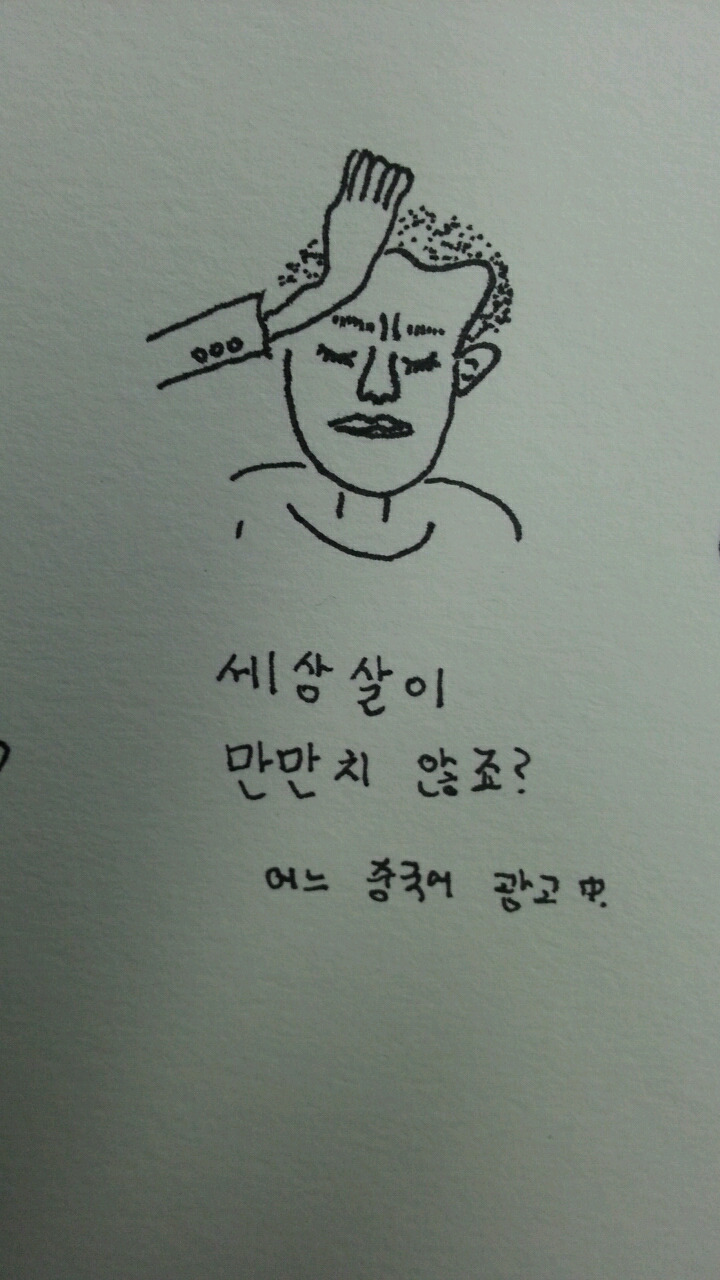 세상살이
만만치 않죠?
어느 중국어 광고 中.